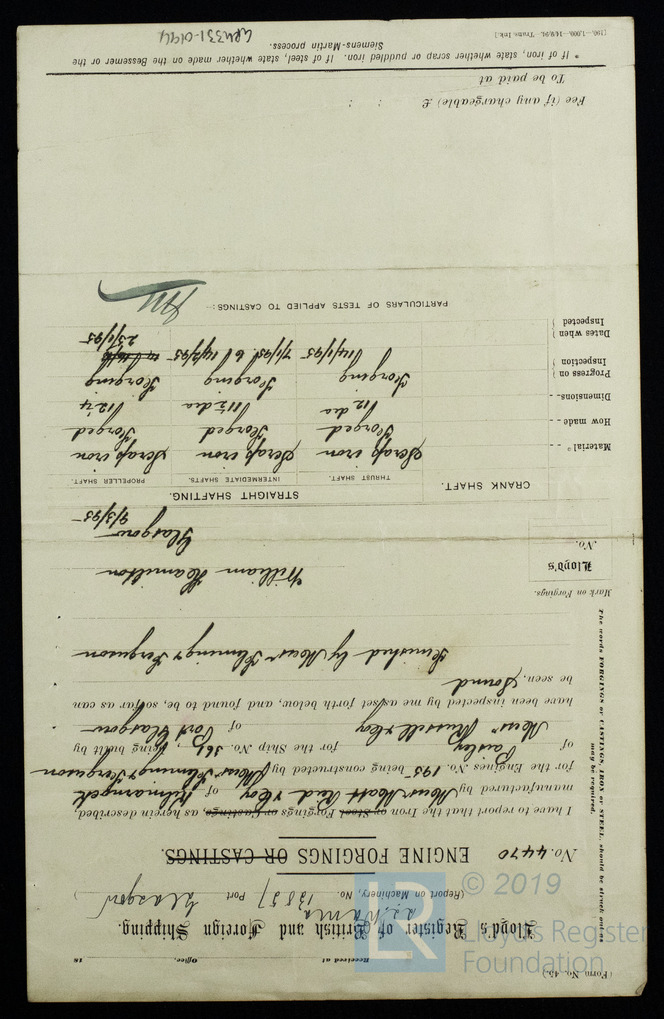 (Form No. 45.)
Received at Office, 18
Lloyd's Register of British and Foreign Shipping.
s.s. Warma
(Report on Machinery, No. 13857 Port Glasgow)
No. 4470 ENGINE FORGINGS OR CASTINGS.
I have to report that the Iron or Steel Forgings or Castings, as herein described,
manufactured by Messrs Matt Reid & Coy of Kilmarnock
for the Engines No. 195 being constructed by Messrs Fleming & Ferguson
of Paisley for the Ship No. 361, being built by
Messrs Russell & Coy of Port Glasgow
have been inspected by me as set forth below, and found to be, so far as can
be seen, Sound
Finished by Messrs Fleming & Ferguson
The words FORGINGS or CASTINGS, IRON or STEEL, should be struck out as
may be required.
Mark on Forgings.
Lloyd's
No.
William Hamilton
Glasgow
9/3/95
STRAIGHT SHAFTING.
CRANK SHAFT. THRUST SHAFT. INTERMEDIATE SHAFTS. PROPELLER SHAFT.
Material * Scrap iron Scrap iron Scrap iron
How made Forged Forged Forged
Dimensions 12 dia 11½ dia 12¼
Progress on
Inspection Forging Forging Forging
Dates when
Inspected 14/1/95 7/1/95 to 14/2/95 23/1/95
PARTICULARS OF TESTS APPLIED TO CASTINGS:—
Fee (if any chargeable) £ : :
To be paid at
* If of iron, state whether scrap or puddled iron. If of steel, state whether made on the Bessemer or the
Siemens-Martin process.
GRW331-0194
© 2019
LR
Lloyd's Register
Foundation